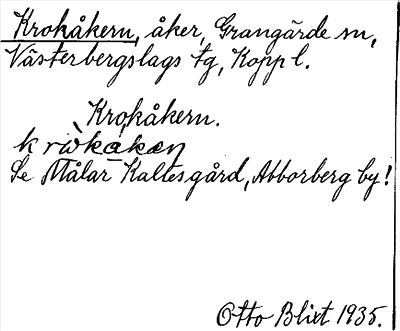 Krokåkern, åker, Grangärde sn,
Västerbergslags tg, Kopp l.
Krokåkern.
kròkåkæn
Se Målar Kallesgård, Abborberg by!
Otto Blixt 1935.